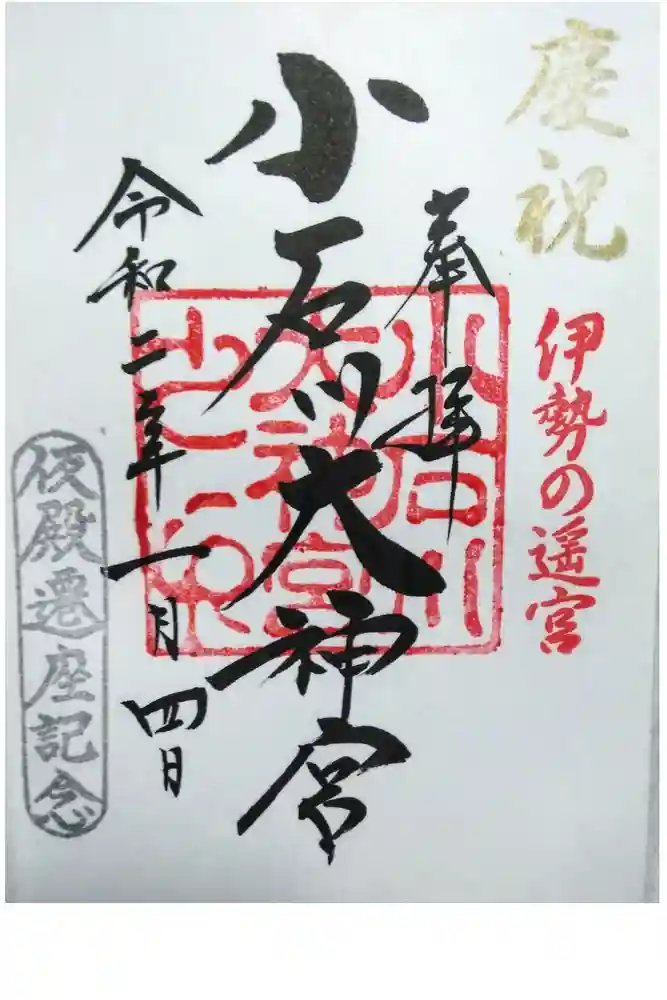 慶祝
伊勢の遥宮
奉拝
小石川大神宮
小石川
大神宮
之印
令和二年一月四日
仮殿遷座記念